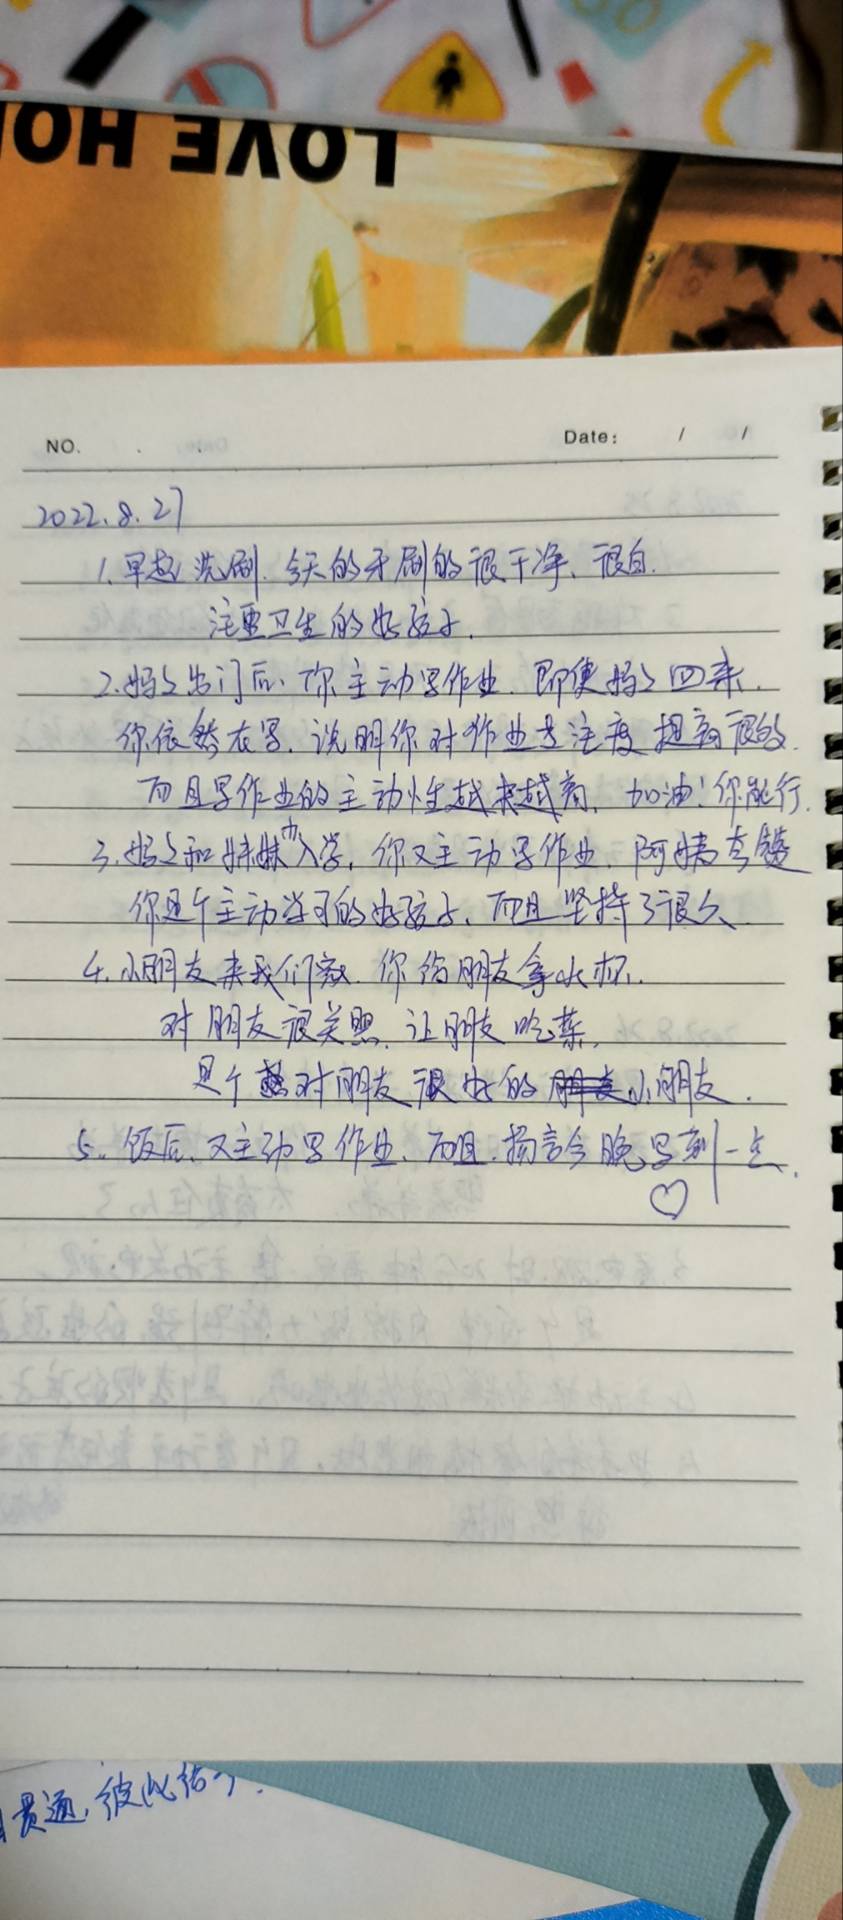 LOVE HO
NO.
Date: / /
2022.8.27
1.早起洗刷.今天的牙刷的很干净、很白.
注重卫生的好孩子.
2.妈妈出门后、你主动写作业.即使妈妈回来.
你依然在写.说明你对作业专注度提高很多.
而且写作业的主动性越来越高.加油!你能行.
3.妈妈和妹妹办入学,你又主动写作业.阿姨夸赞
你是个主动学习的好孩子、而且坚持了很久
4.小朋友来我们家.你给朋友拿水杯.
对朋友很关照.让朋友吃菜.
是个对朋友很好的小朋友.
5.饭后、又主动写作业、而且.扬言今晚写到一点.
贯通,彼此结